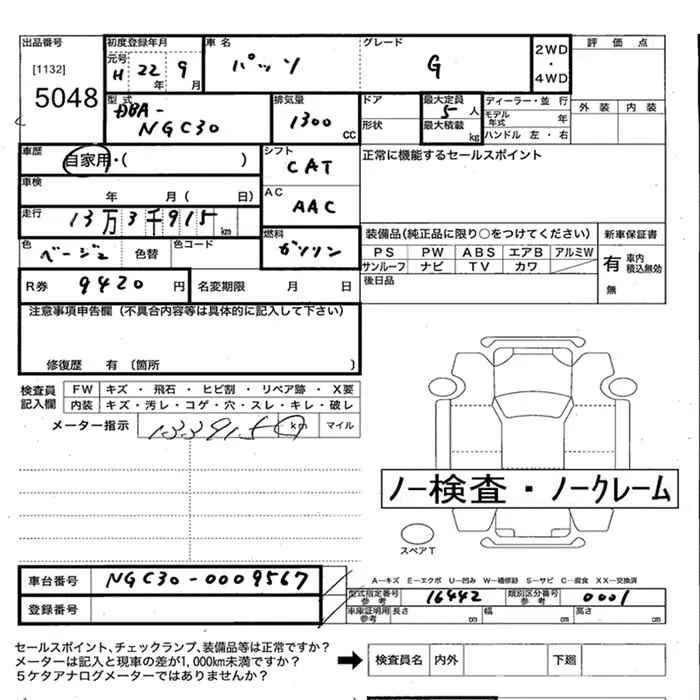 出品番号 初度登録年月 車名 グレード 評価点
[1132] 元号 H 22年 9月 パッソ G 2WD・4WD
5048 型式 DBA-NGC30 排気量 1300 CC ドア 形状 最大定員 5人 最大積載 kg ディーラー・並行 モデル年式 年 ハンドル 左・右 外装 内装
車歴 自家用・( ) シフト CAT 正常に機能するセールスポイント
車検 年 月(日) AC AAC
走行 13万3千915 km 燃料 ガソリン 装備品(純正品に限り○をつけてください) 新車保証書
色 ベージュ 色替 色コード PS PW ABS エアB アルミW 有 車内積込無効
サンルーフ ナビ TV カワ 無
R券 9420円 名変期限 月 日 後日品
注意事項申告欄(不具合内容等は具体的に記入して下さい)
修復歴 有〔箇所 〕
検査員記入欄 FW キズ・飛石・ヒビ割・リペア跡・X要
内装 キズ・汚レ・コゲ・穴・スレ・キレ・破レ
メーター指示 133915 km マイル
ノー検査・ノークレーム
スペアT
車台番号 NGC30-0009567
登録番号
A-キズ E-エクボ U-凹み W-補修跡 S-サビ C-腐食 XX-交換済
型式指定番号 参考 16442 類別区分番号 参考 0001
車庫証明用 参考 長さ cm 幅 cm 高さ cm
セールスポイント、チェックランプ、装備品等は正常ですか?
メーターは記入と現車の差が1,000km未満ですか?
5ケタアナログメーターではありませんか?
検査員名 内外 下廻